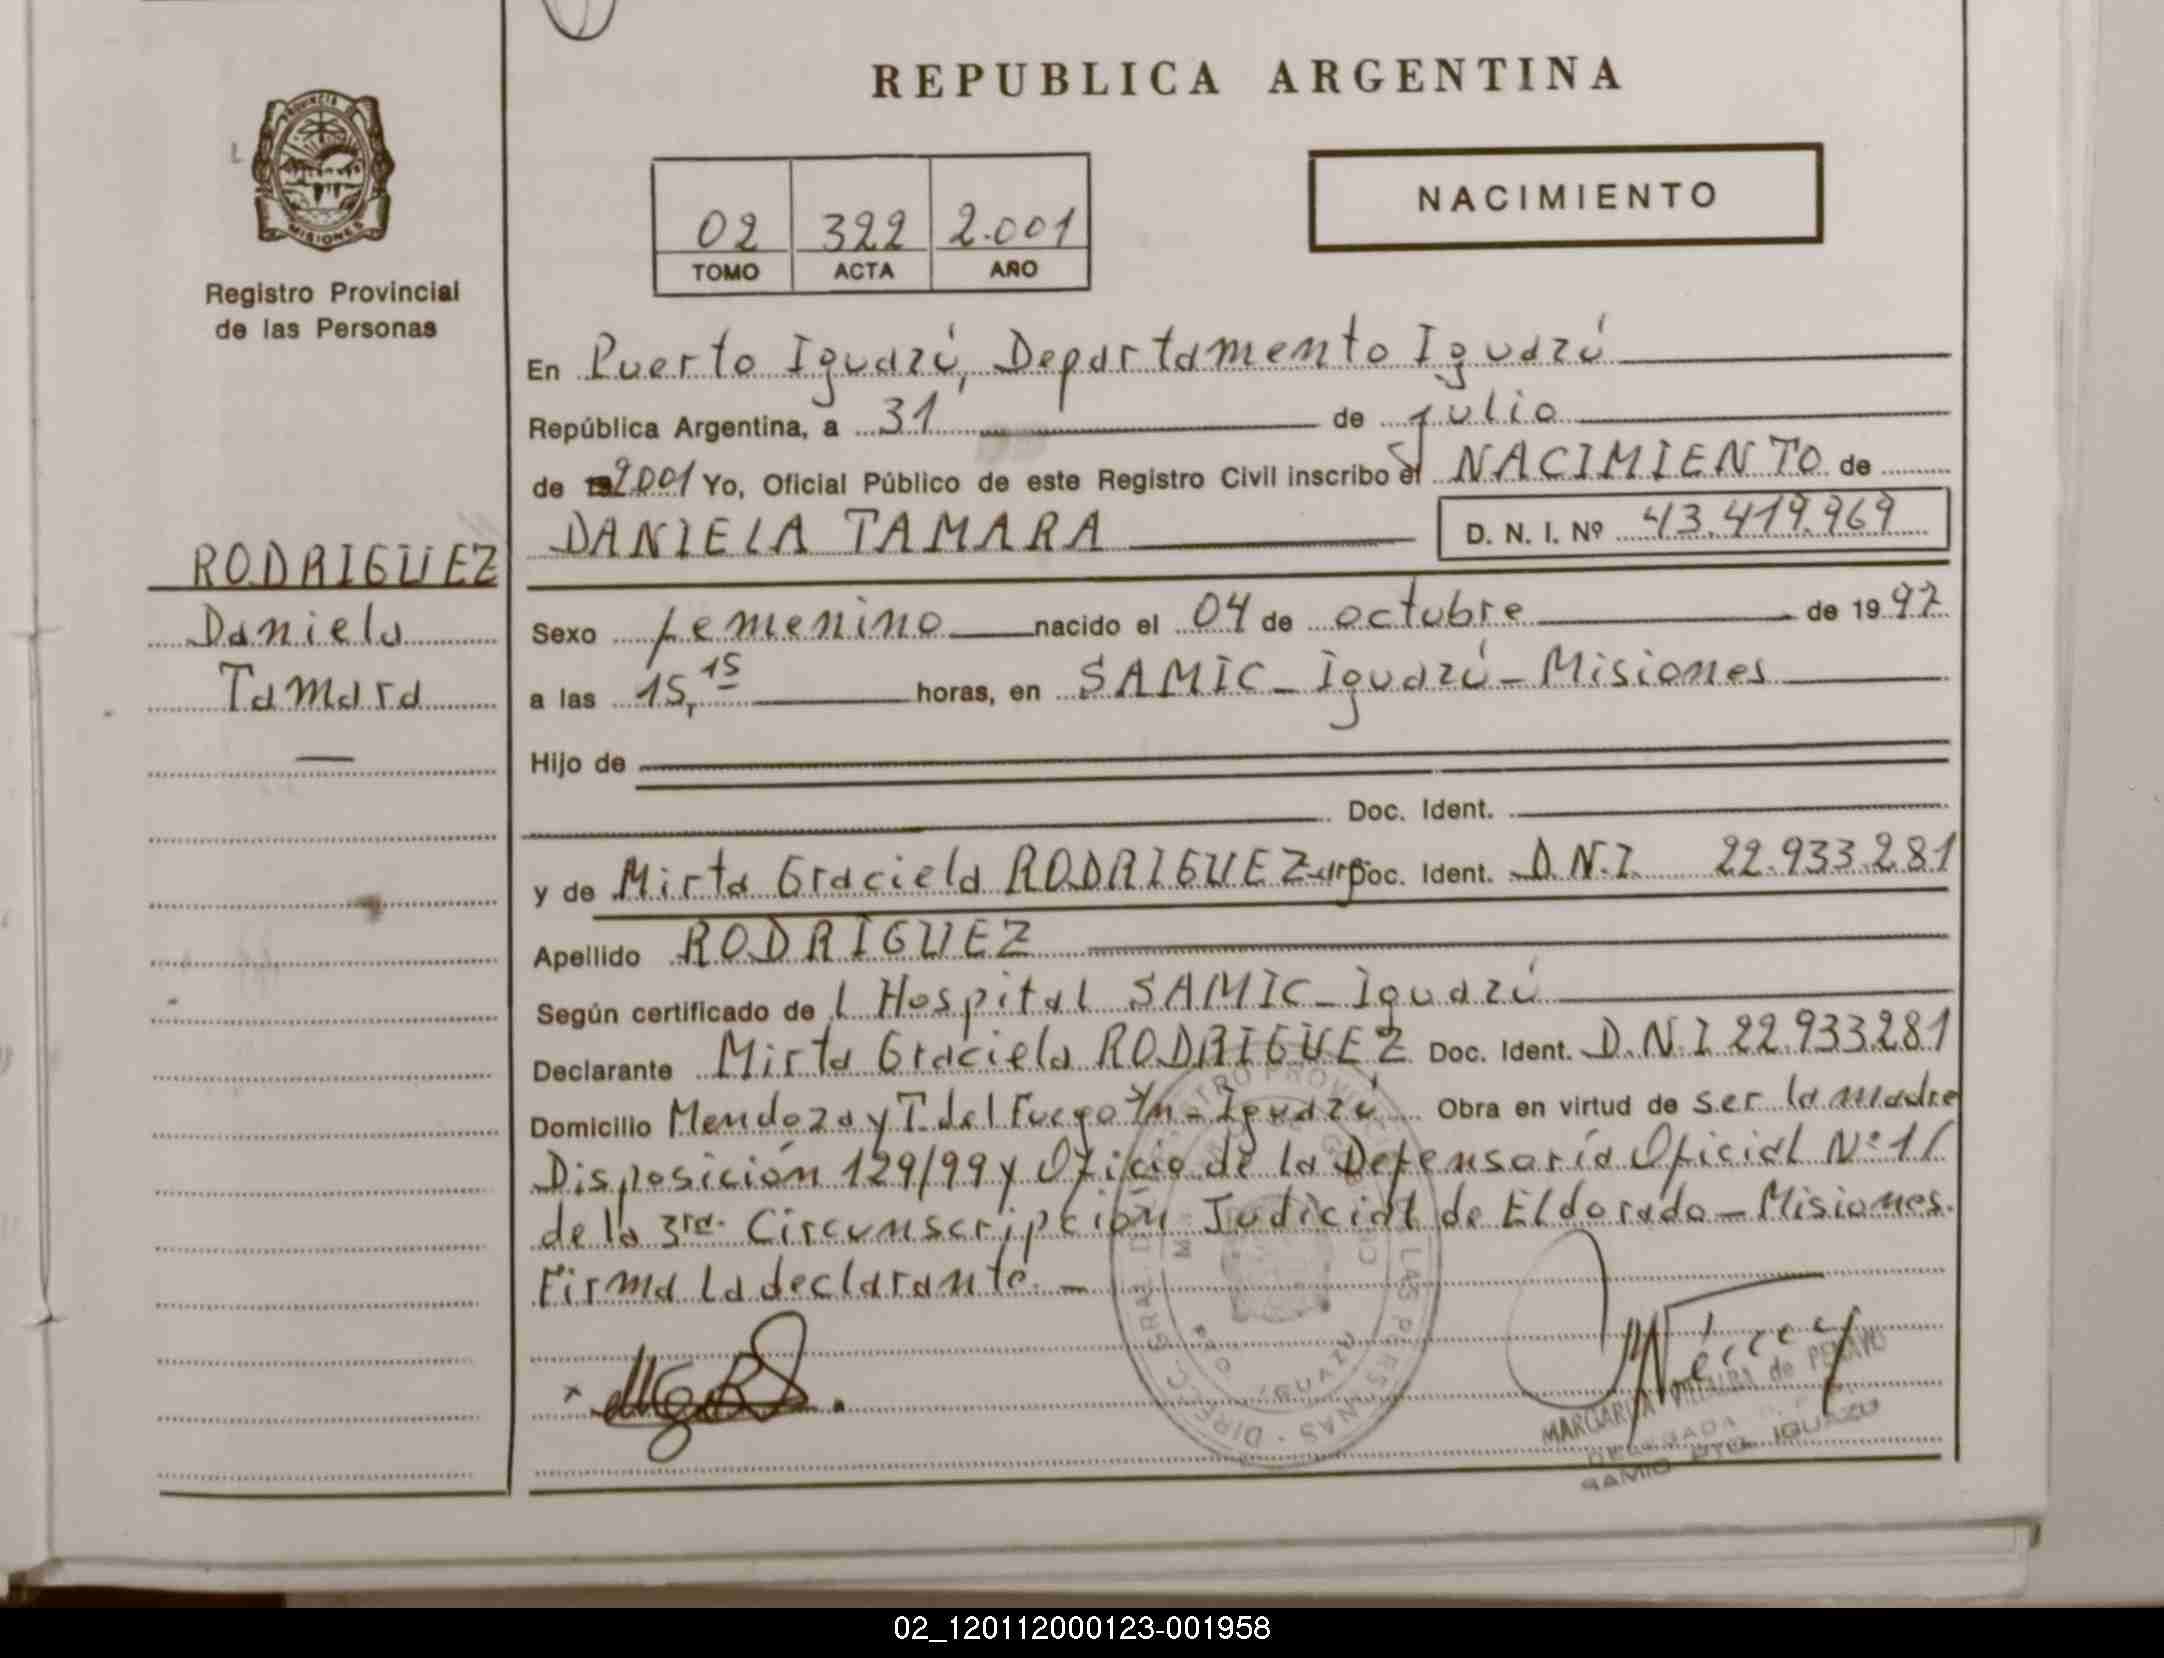 REPUBLICA ARGENTINA
PROVINCIA DE
MISIONES
Registro Provincial
de las Personas
02 322 2.001
TOMO ACTA AÑO
NACIMIENTO
En Puerto Iguazú, Departamento Iguazú
República Argentina, a 31 de julio
de 2001 Yo, Oficial Público de este Registro Civil inscribo el NACIMIENTO de
DANIELA TAMARA D. N. I. Nº 43.419.969
RODRIGUEZ
Daniela
Tamara
Sexo femenino nacido el 04 de octubre de 1997
a las 15,15 horas, en SAMIC - Iguazú - Misiones
Hijo de
Doc. Ident.
y de Mirta Graciela RODRIGUEZ - arg Doc. Ident. D.N.I. 22.933.281
Apellido RODRIGUEZ
Según certificado de l Hospital SAMIC - Iguazú
Declarante Mirta Graciela RODRIGUEZ Doc. Ident. D.N.I 22.933.281
Domicilio Mendoza y T. del Fuego s/n - Iguazú Obra en virtud de ser la madre
Disposición 129/99 y Oficio de la Defensoría Oficial Nº 1/
de la 3ra. Circunscripción Judicial de Eldorado - Misiones.
Firma la declarante. -
MARGARITA VILLALBA de PENAYO
DELEGADA
SAMIC PTO. IGUAZU
02_120112000123-001958